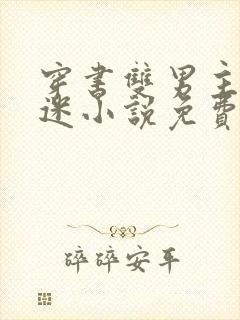 穿書雙男主
迷小說免費
碎碎安平